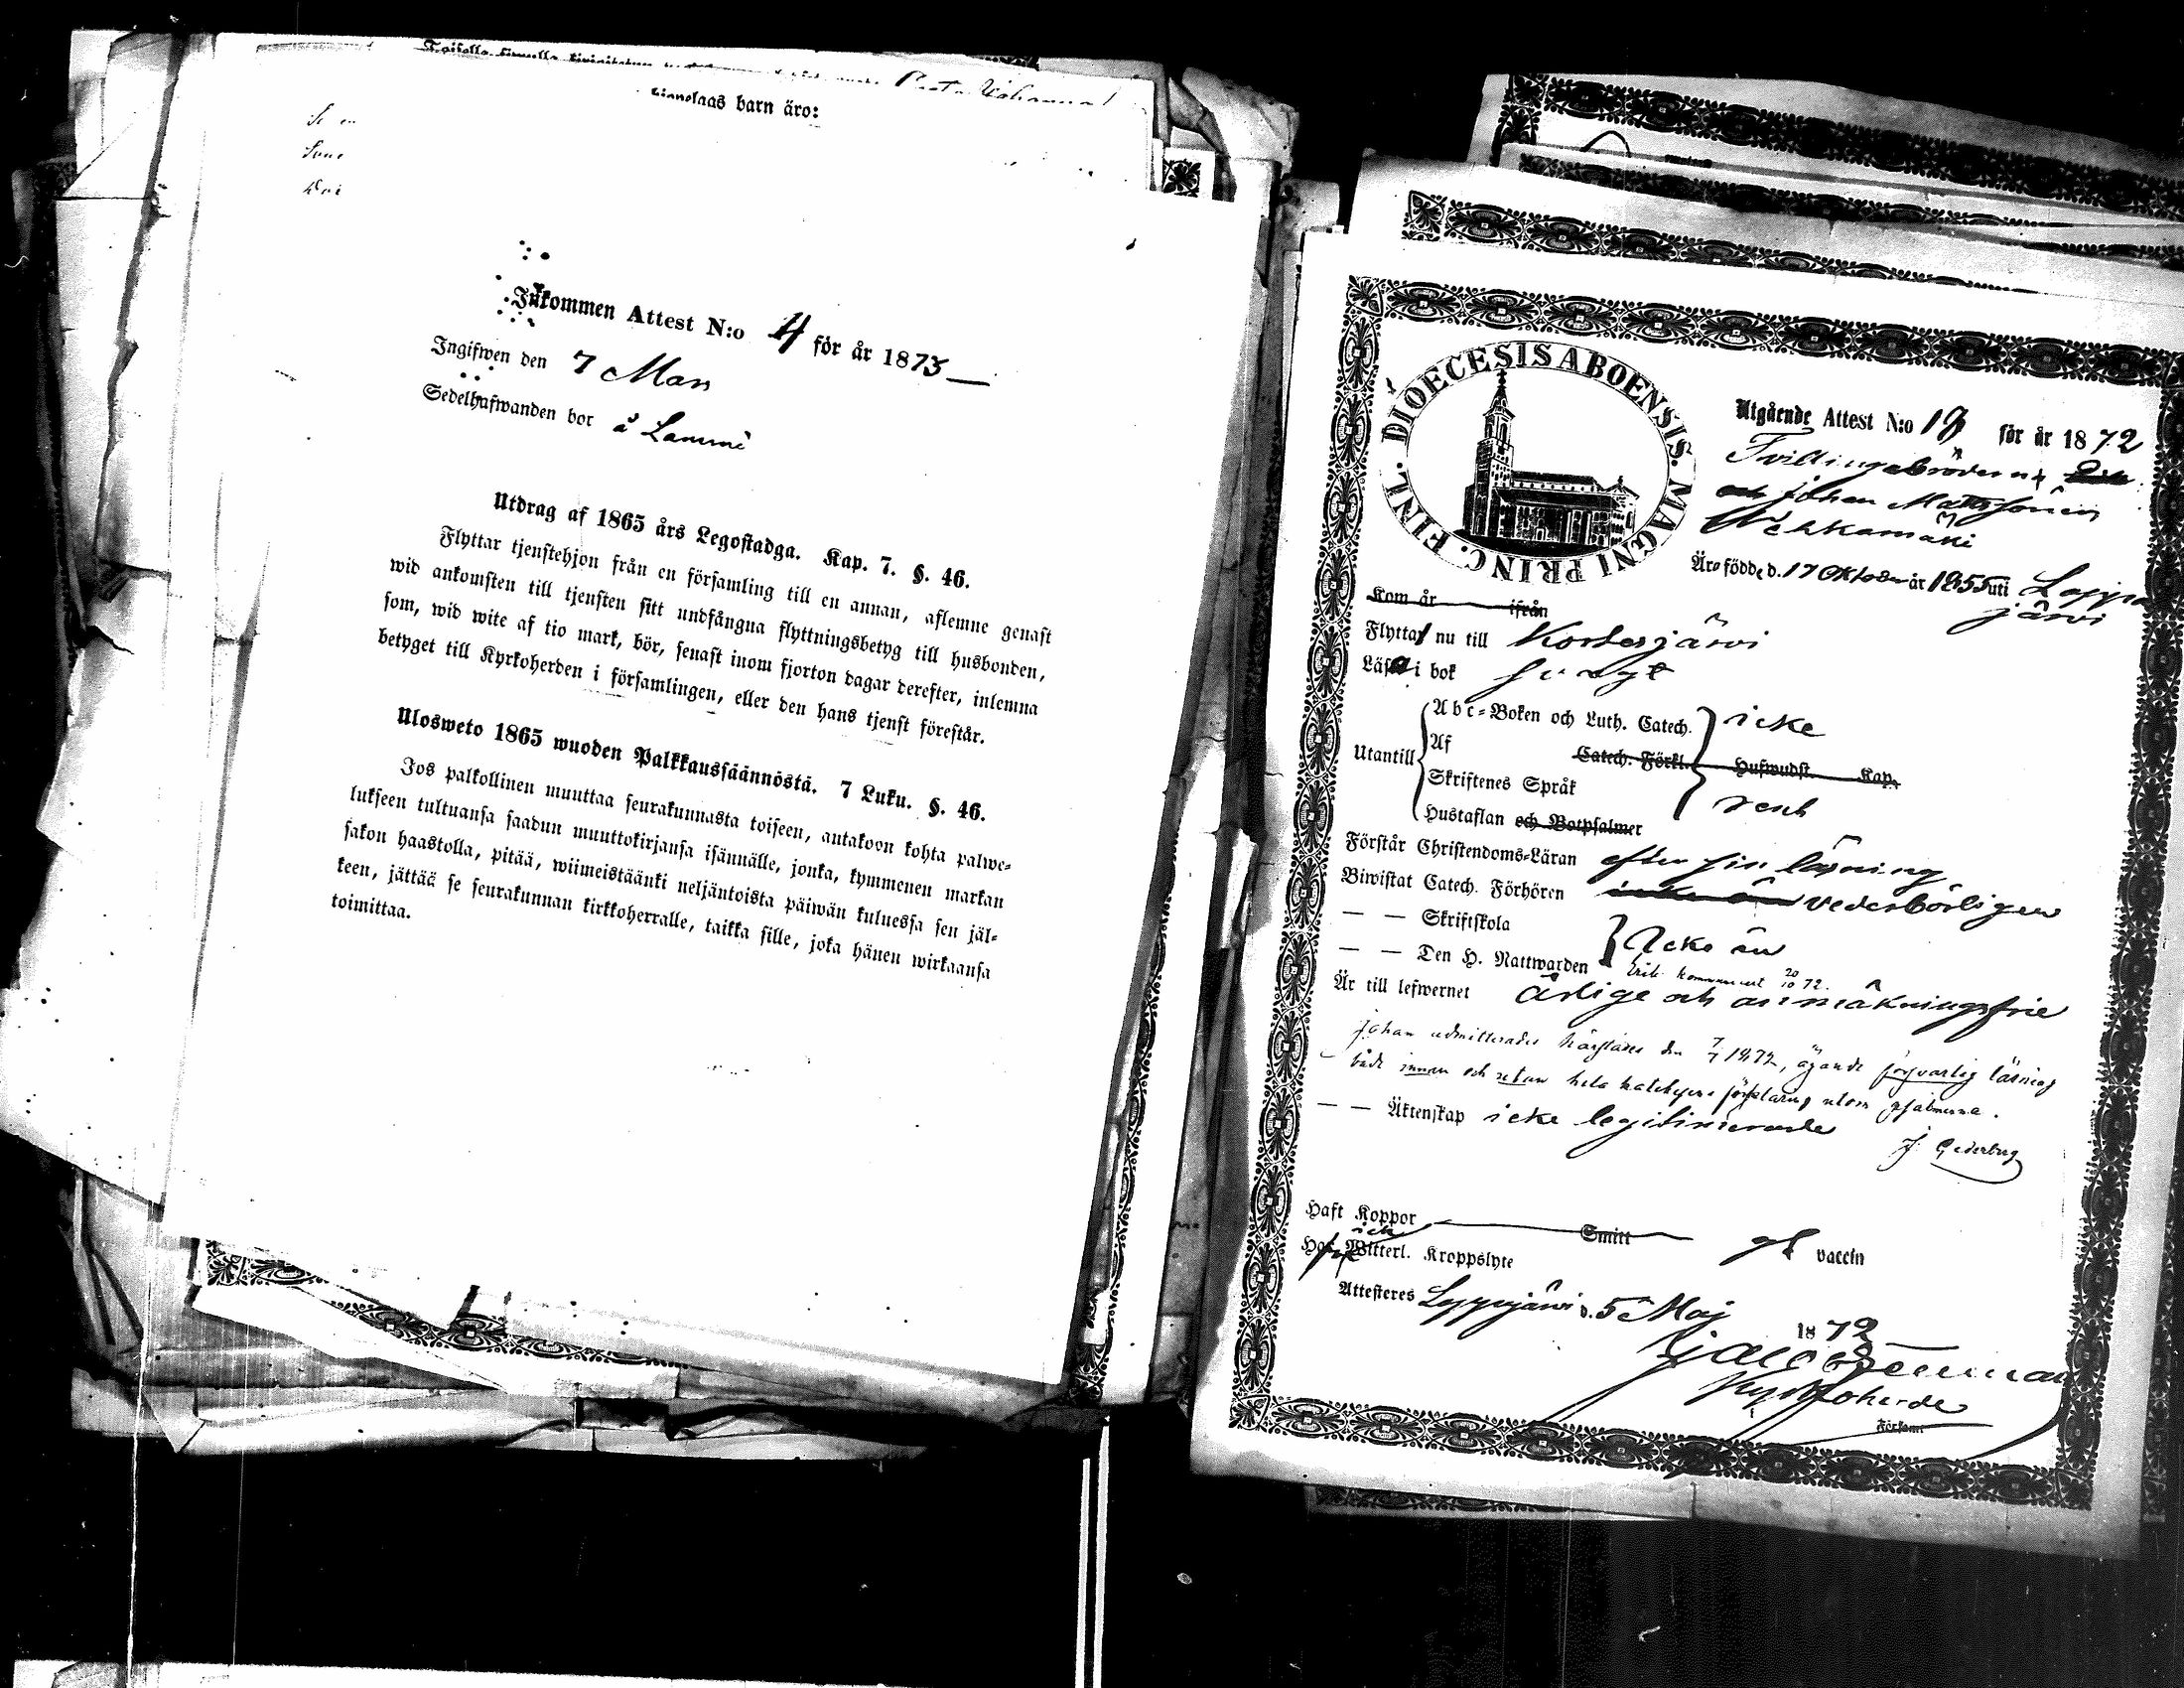 äganlags barn äro:
Inkommen Attest N:o 4 för år 1873
Ingifwen den 7 Mars
Sedelhafwanden bor å Lammi
Utdrag af 1865 års Legostadga. Kap. 7. §. 46.
Flyttar tjenstehjon från en församling till en annan, aflemne genast
wid ankomsten till tjensten sitt undfångna flyttningsbetyg till husbonden,
som, wid wite af tio mark, bör, senast inom fjorton dagar derefter, inlemna
betyget till Kyrkoherden i församlingen, eller den hans tjenst förestår.
Ulosweto 1865 wuoden Palkkaussäännöstä. 7 Luku. §. 46.
Jos palkollinen muuttaa seurakunnasta toiseen, antakoon kohta palwe-
lukseen tultuansa saadun muuttokirjansa isännälle, jonka, kymmenen markan
sakon haastolla, pitää, wiimeistäänki neljäntoista päiwän kuluessa sen jäl-
keen, jättää se seurakunnan kirkkoherralle, taikka sille, joka hänen wirkaansa
toimittaa.
DIOECESIS ABOENSIS. MAGNI PRINC. FINL.
Utgående Attest N:o för år 1872
Tvillingebröderna
och Johan Mattssöner
Äro födde d. 17 Oktober år 1855 uti Lappa
järvi
Kom år ifrån
Flytta nu till Kortesjärvi
Läsa i bok svagt
Utantill
Abc-Boken och Luth. Catech. icke
Af Catech. Förkl. Hufwudst. Kap.
Skriftenes Språk
Hustaflan och Botpsalmer
Förstår Christendoms-Läran efter sin läsning
Biwistat Catech. Förhören vederbörligen
— — Skriftskola
— — Den H. Nattwarden Icke än
Erik kommunicerat 20/10 72.
Är till lefwernet ärlige och anmärkningsfrie
Johan admitterades härstädes den 7/7 1872, ägande försvarlig läsning
både innan och utan hela katekesens förklaring utom psalmerna.
— — Äktenskap icke legitimerade
J. Cederberg
Haft Koppor Smitt vaccin
Haf Witterl. Kroppslyte
icke
Attesteres Lappajärvi d. 5 Maj 1872
Kyrkoherde
Församl